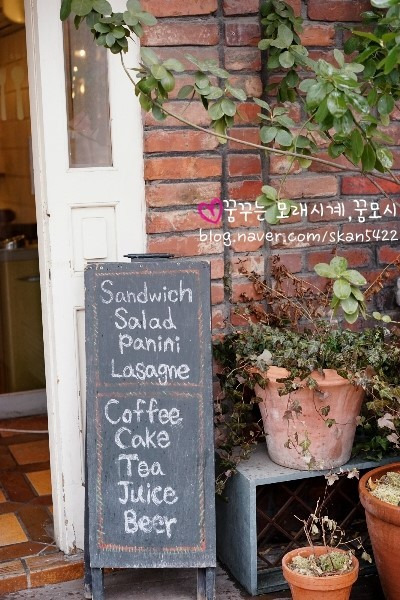 꿈꾸는 모래시계,꿈모시
blog.naver.com/skan5422
Sandwich
Salad
Panini
Lasagne
Coffee
Cake
Tea
Juice
Beer